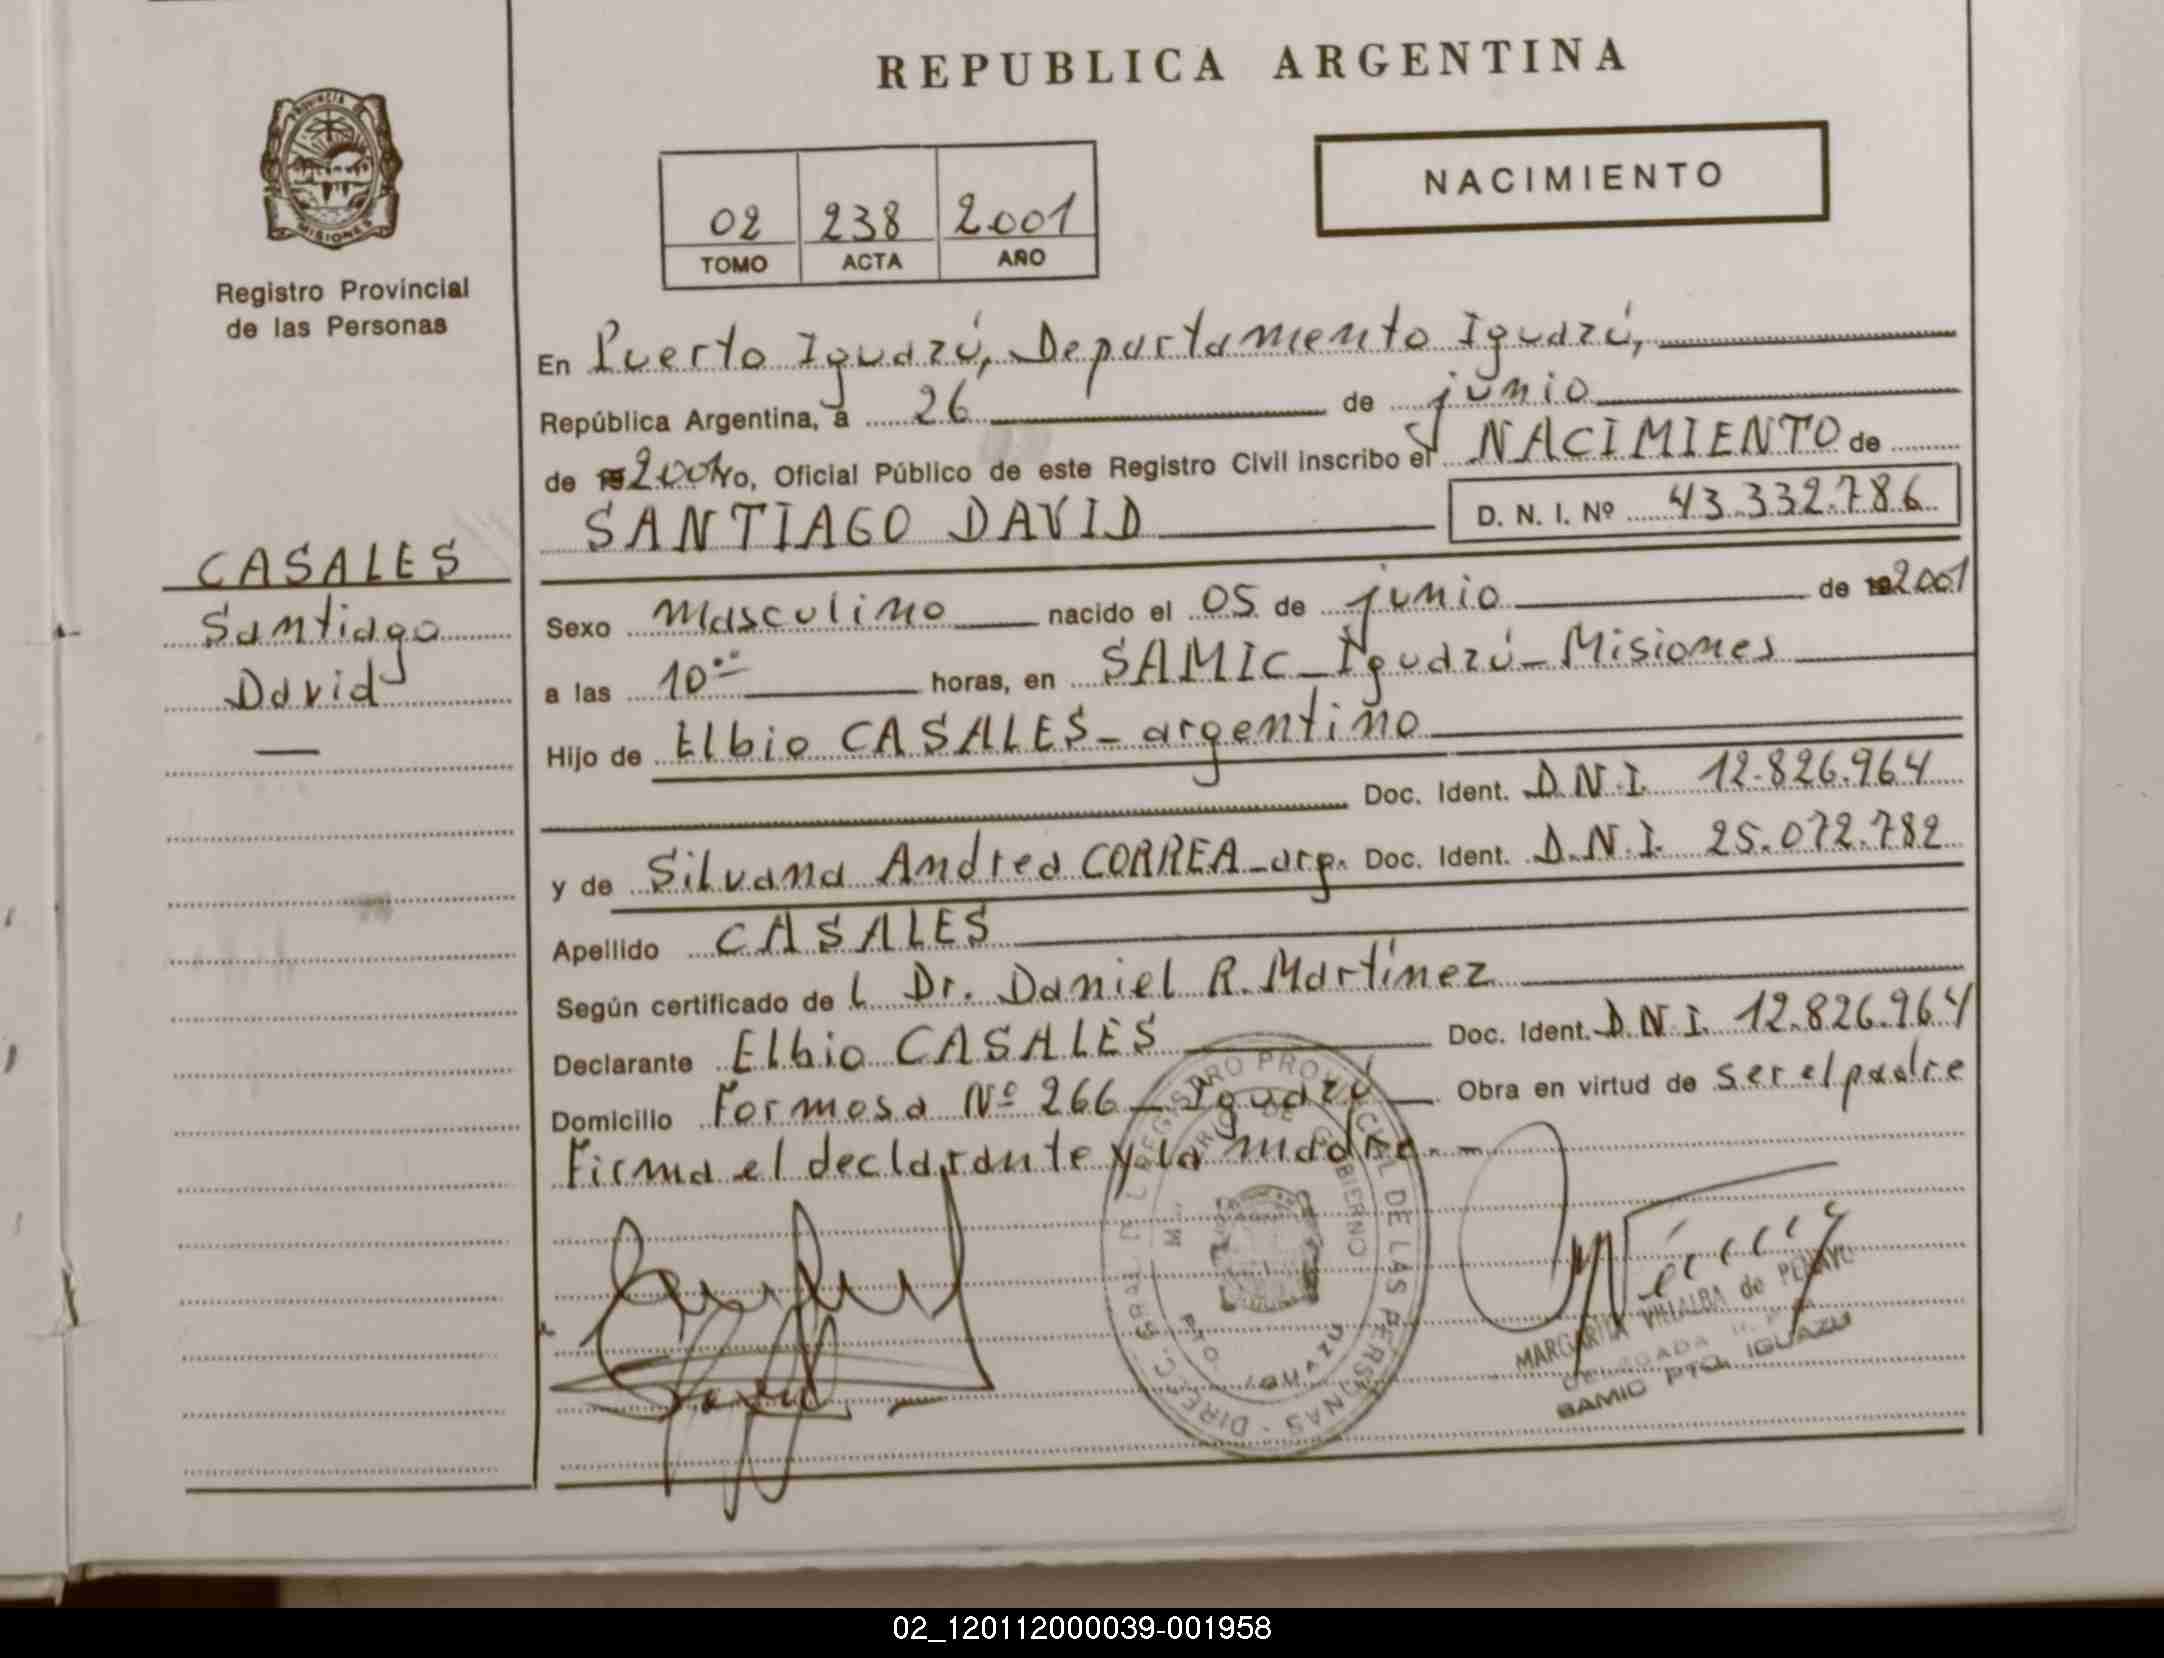 REPUBLICA ARGENTINA
PROVINCIA DE
MISIONES
Registro Provincial
de las Personas
NACIMIENTO
02 238 2001
TOMO ACTA AÑO
En Puerto Iguazú, Departamento Iguazú,
República Argentina, a 26 de junio
de 19 2001 Yo, Oficial Público de este Registro Civil inscribo el NACIMIENTO de
SANTIAGO DAVID D. N. I. Nº 43.332.786
CASALES
Santiago
David
Sexo masculino nacido el 05 de junio de 19 2001
a las 10 horas, en SAMIC - Iguazú - Misiones
Hijo de Elbio CASALES - argentino
Doc. Ident. D.N.I. 12.826.964
y de Silvana Andrea CORREA - arg. Doc. Ident. D.N.I. 25.072.782
Apellido CASALES
Según certificado de l Dr. Daniel R. Martínez
Declarante Elbio CASALES Doc. Ident. D.N.I. 12.826.964
Domicilio Formosa Nº 266 - Iguazú Obra en virtud de ser el padre
Firma el declarante y la madre. -
REGISTRO PROVINCIAL DE LAS PERSONAS
DE GOBIERNO
PTO. IGUAZU
MARGARITA VILLALBA de
SAMIC PTO. IGUAZU
02_120112000039-001958